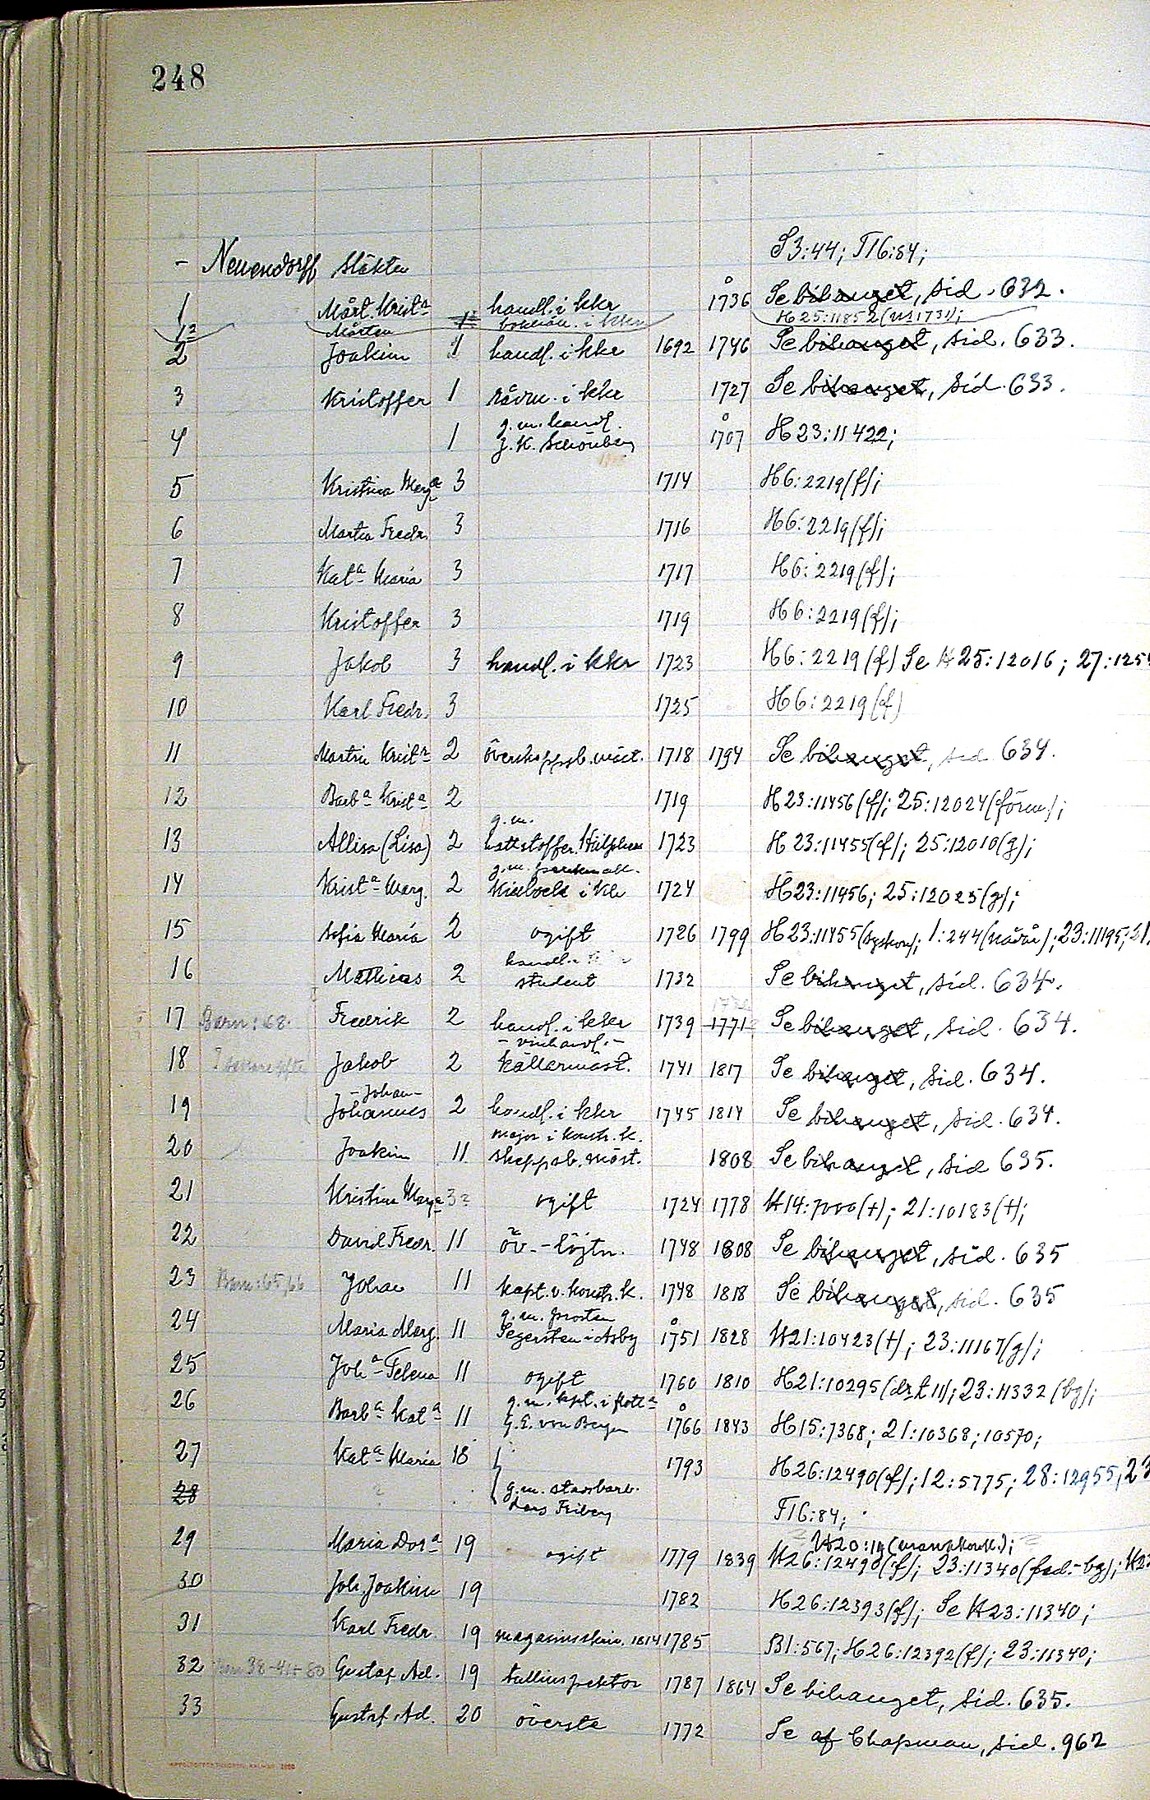 248
- Neuendorff släkten S3:44; T16:84;
1 Mårt. Krist^a handl. i kkr å 1736 Se bihanget, sid. 632.
1² Mårten 1 bokhåll. i kkr H25:11852 (us 1731);
2 Joakim 1 handl. i kkr 1692 1746 Se bihanget, sid. 633.
3 Kristoffer 1 rådm. i kkr 1727 Se bihanget, sid. 633.
g.m. handl.
4 1 J.K. Schönberg å 1707 H23:11422;
5 Kristina Marg^a 3 1714 H6:2219(f);
6 Martin Fredr. 3 1716 H6:2219(f);
7 Kat^a Maria 3 1717 H6:2219(f);
8 Kristoffer 3 1719 H6:2219(f);
9 Jakob 3 handl. i kkr 1723 H6:2219(f) Se H25:12016; 27:125
10 Karl Fredr. 3 1725 H6:2219(f)
11 Martin Krist^n 2 överskeppsb.mäst. 1718 1794 Se bihanget, sid 634.
12 Barb^a Krist^a 2 1719 H23:11456(f); 25:12024(förm);
g.m.
13 Allisa (Lisa) 2 hattstoffer. 1723 H23:11455(f); 25:12010(g);
g.m.
14 Krist^a Marg. 2 i Kkr 1724 H23:11456; 25:12025(g);
15 Sofia Maria 2 ogift 1726 1799 H23:11455(syskon); 1:244(nådår); 23:11195; 21.
handl. i
16 Mathias 2 student 1732 Se bihanget, sid. 634.
17 Barn: 68. Fredrik 2 handl. i kkr 1739 1771 Se bihanget, sid. 634.
- vinhandl. -
18 Jakob 2 källarmäst. 1741 1817 Se bihanget, sid. 634.
- Johan -
19 Johannes 2 handl. i kkr 1745 1814 Se bihanget, sid. 634.
major i konstr. k.
20 Joakim 11 skeppsb. mäst. 1808 Se bihanget, sid 635.
21 Kristina Marg^a 3² ogift 1724 1778 H14:7000(†); 21:10183(†);
22 David Fredr. 11 öv.-löjtn. 1748 1808 Se bihanget, sid. 635
23 Barn: 65, 66 Johan 11 kapt. v. konstr. k. 1748 1818 Se bihanget, sid. 635
g.m. prosten
24 Maria Marg. 11 Segersten i Asby å 1751 1828 H21:10423(†); 23:11167(g);
25 Joh^a Helena 11 ogift 1760 1810 H21:10295(drt 11); 23:11332(bg);
g.m. kapt. i flott^a
26 Barb^a Kat^a 11 G.E. von Bergen å 1766 1843 H15:7368; 21:10368; 10570;
27 Kat^a Maria 18 1793 H26:12490(f); 12:5775; 28:12955, 23
g.m. styrb.
28 Lars Friberg T16:84;
H20:14(mansk.);
29 Maria Dor^a 19 ogift 1779 1839 H26:12490(f); 23:11340(fad.-bg); H2
30 Joh. Joakim 19 1782 H26:12393(f); Se H23:11340;
31 Karl Fredr. 19 magasinsskriv. 1814 1785 B1:567; H26:12392(f); 23:11340;
32 Barn 38-41+80 Gustaf Ad. 19 tullinspektor 1787 1864 Se bihanget, sid. 635.
33 Gustaf Ad. 20 överste 1772 Se af Chapman, sid. 962